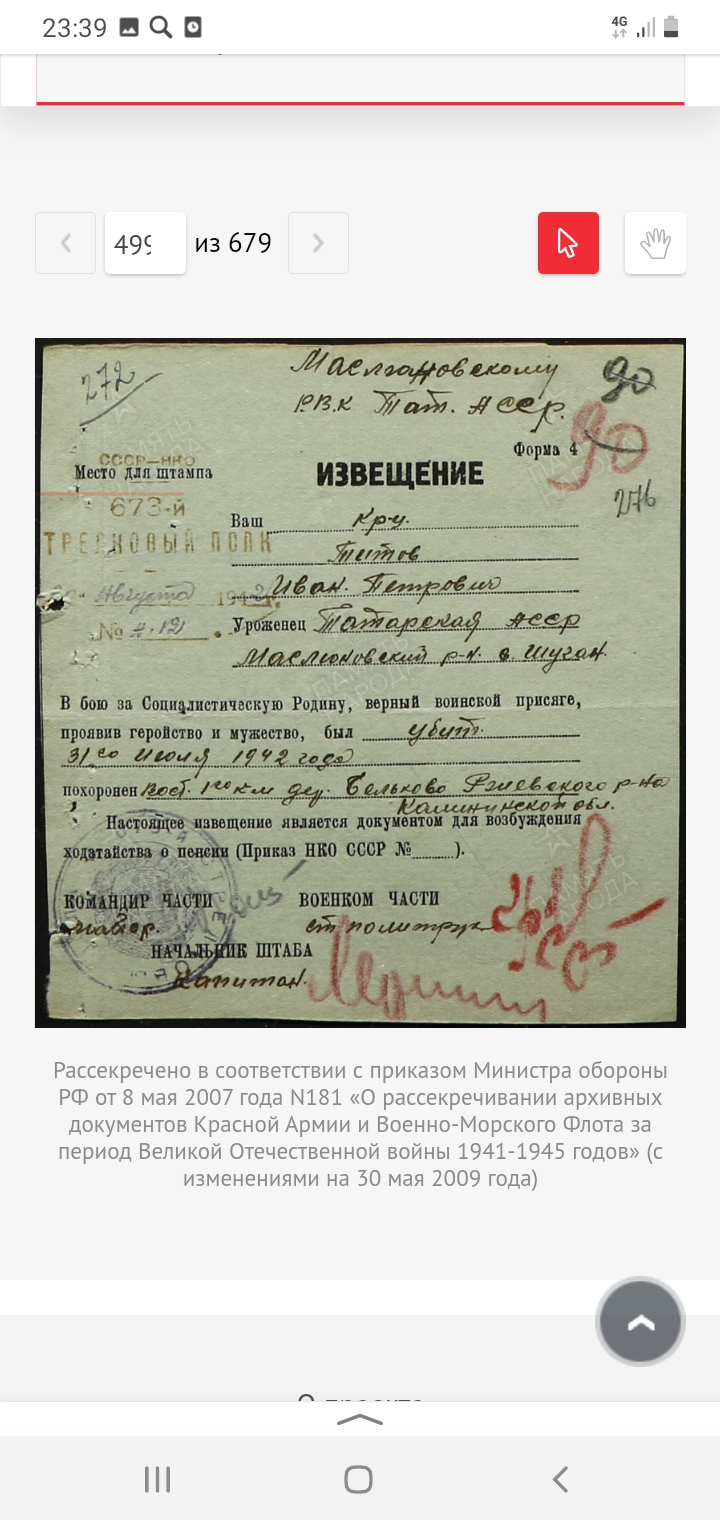 23:39
4G
499
из 679
272
Маслгановскому
90
Р.В.К Тат. АССР.
Форма 4
90
СССР-НКО
Место для штампа
ИЗВЕЩЕНИЕ
276
673-й
Ваш Кр-ц.
СТРЕЛКОВЫЙ ПОЛК
Титов
Августа 1942
Иван. Петрович
№ Уроженец Татарская АССР
р-н. с. Шуган.
В бою за Социалистическую Родину, верный воинской присяге,
проявив геройство и мужество, был убит.
31го Июля 1942 года
похоронен дер. Бельково Ржевского р-на
Калининской обл.
Настоящее извещение является документом для возбуждения
ходатайства о пенсии (Приказ НКО СССР № ).
КОМАНДИР ЧАСТИ
ВОЕНКОМ ЧАСТИ
майор.
ст политрук
НАЧАЛЬНИК ШТАБА
Капитан.
Рассекречено в соответствии с приказом Министра обороны
РФ от 8 мая 2007 года N181 «О рассекречивании архивных
документов Красной Армии и Военно-Морского Флота за
период Великой Отечественной войны 1941-1945 годов» (с
изменениями на 30 мая 2009 года)